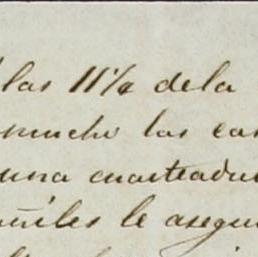 las 11½ de la
mucho las cas
una cuarteadu
añiles le asegu